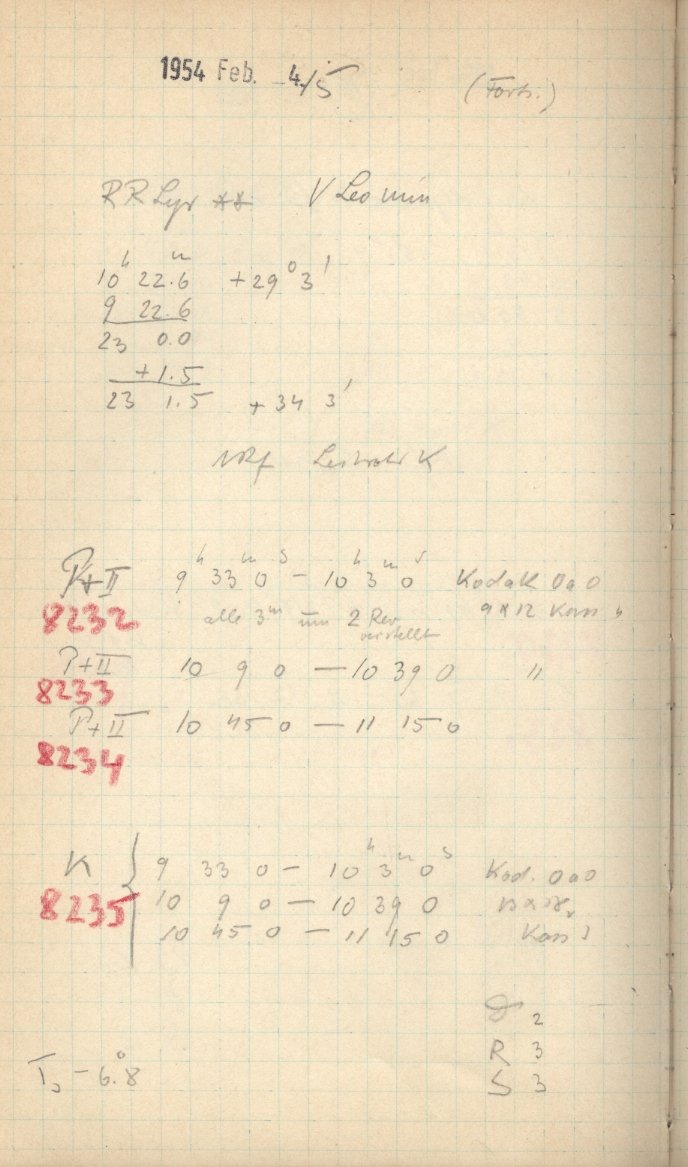 1954 Feb. 4/5 (Forts.)
RR Lyr ** V Leo min
10h 22m.6 +29° 3'
9 22.6
23 0.0
+1.5
23 1.5 +34 3'
K
P+II 9h 33m 0s – 10h 3m 0s Kodak OaO
8232 alle 3m um 2 Rev 9x12 Kass
verstellt
P+II 10 9 0 — 10 39 0 "
8233
P+II 10 45 0 — 11 15 0
8234
K 9 33 0 — 10h 3m 0s Kod. OaO
8235 10 9 0 — 10 39 0
10 45 0 — 11 15 0 Kass
2
R 3
T –6°.8 S 3